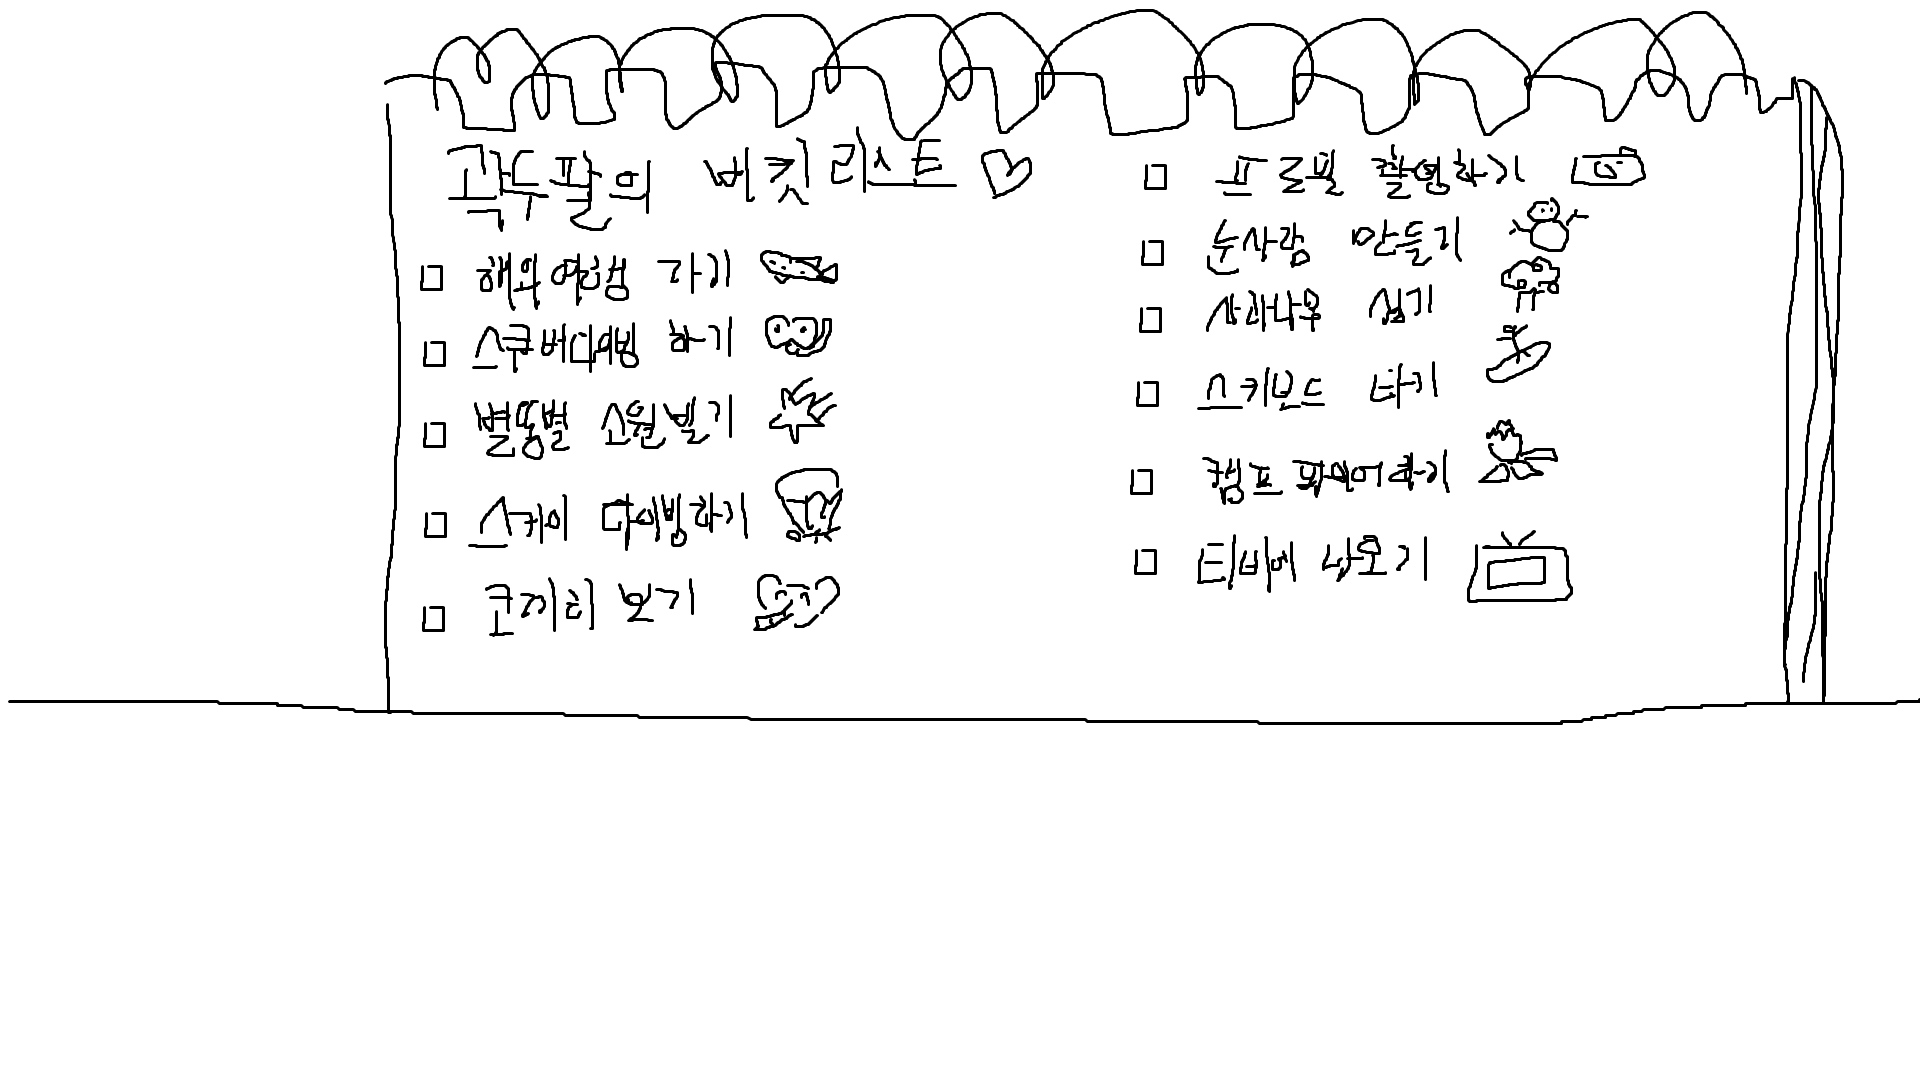 곽두팔의 버킷리스트
해외여행 가기
스쿠버다이빙 하기
별똥별 소원빌기
스카이 다이빙하기
코끼리 보기
프로필 촬영하기
눈사람 만들기
사과나무 심기
스키보드 타기
캠프 파이어하기
티비에 나오기